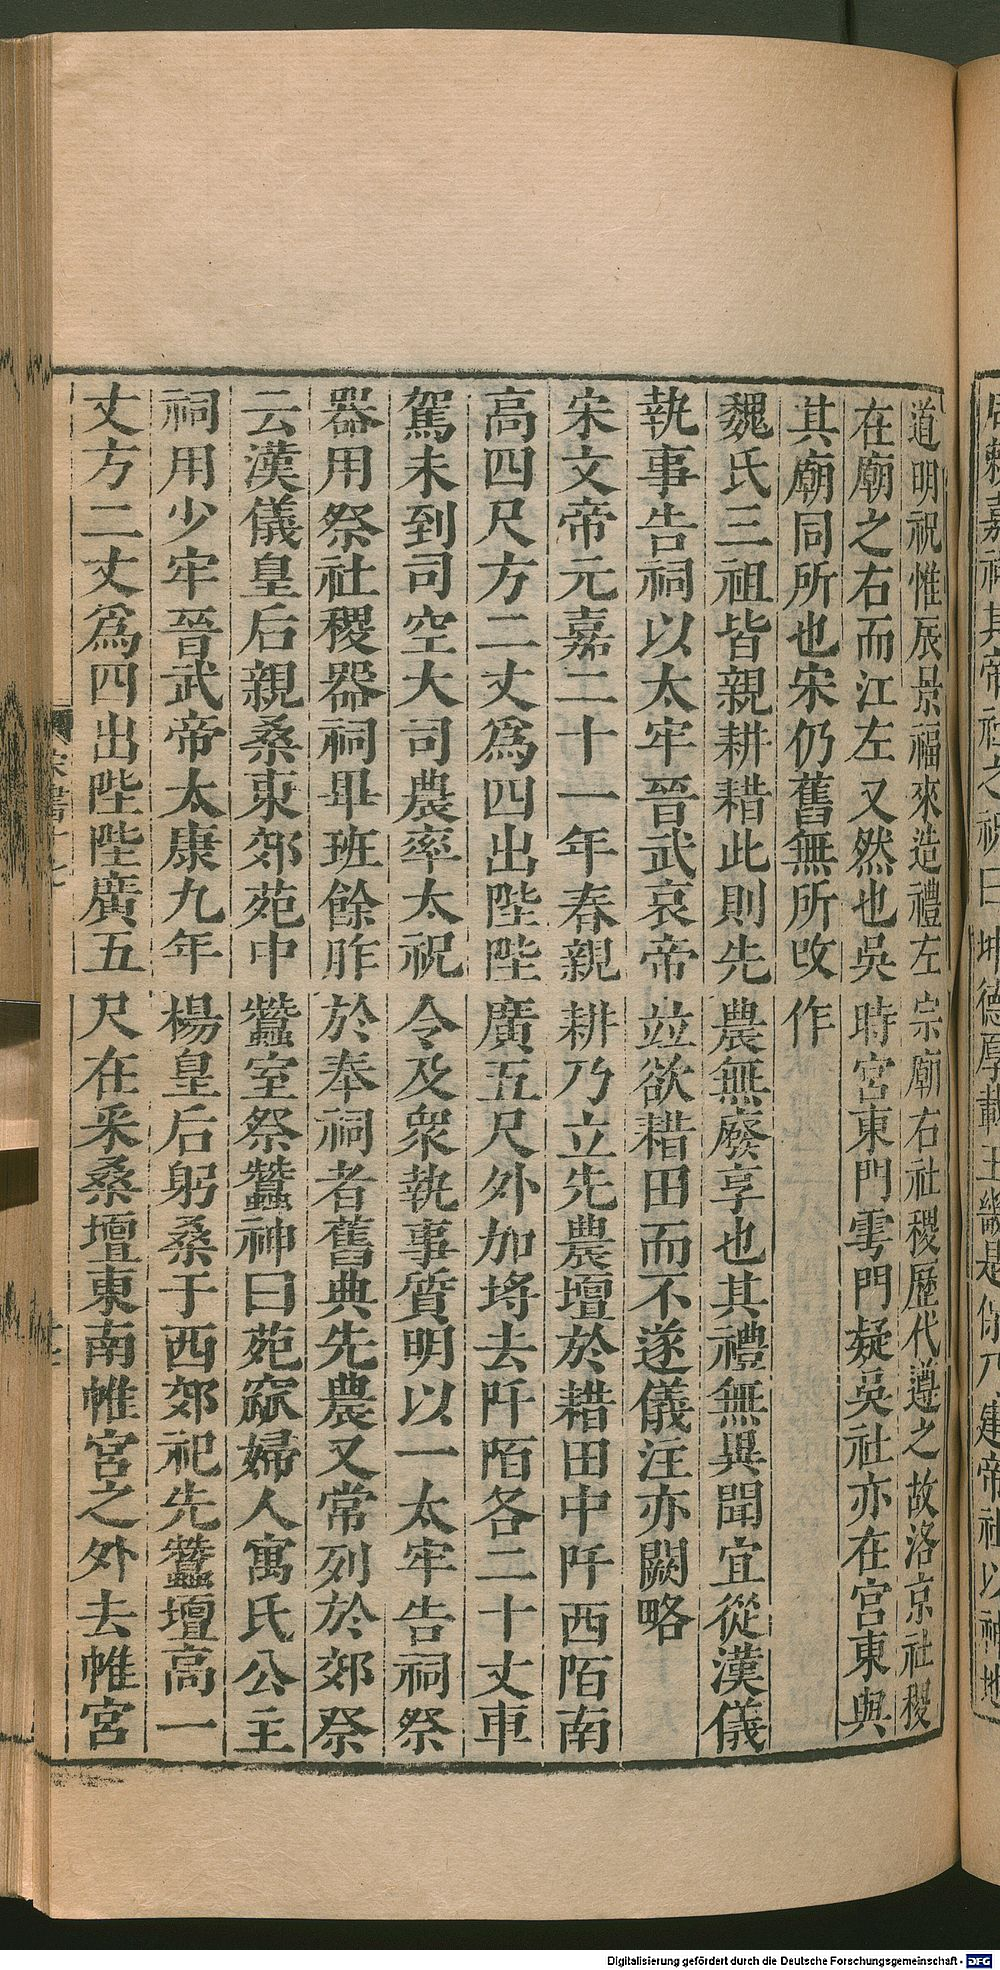 道明祝惟辰景福來造禮左宗廟右社稷歷代遵之故洛京社稷
在廟之右而江左又然也吳時宮東門雩門疑吳社亦在宮東與
其廟同所也宋仍舊無所改作
魏氏三祖皆親耕耤此則先農無廢享也其禮無異聞宜從漢儀
執事告祠以太牢晉武哀帝竝欲耤田而不遂儀注亦闕略
宋文帝元嘉二十一年春親耕乃立先農壇於耤田中阡西陌南
高四尺方二丈爲四出陛陛廣五尺外加埒去阡陌各二十丈車
駕未到司空大司農率太祝令及衆執事質明以一太牢告祠祭
器用祭社稷器祠畢班餘胙於奉祠者舊典先農又常列於郊祭
云漢儀皇后親桑東郊苑中蠶室祭蠶神曰苑窳婦人寓氏公主
祠用少牢晉武帝太康九年楊皇后躬桑于西郊祀先蠶壇高一
丈方二丈爲四出陛陛廣五尺在采桑壇東南帷宮之外去帷宮
宋書十七
嘉神其帝社之祝曰坤德厚載王畿是保乃建帝社以神地
Digitalisierung gefördert durch die Deutsche Forschungsgemeinschaft - DFG